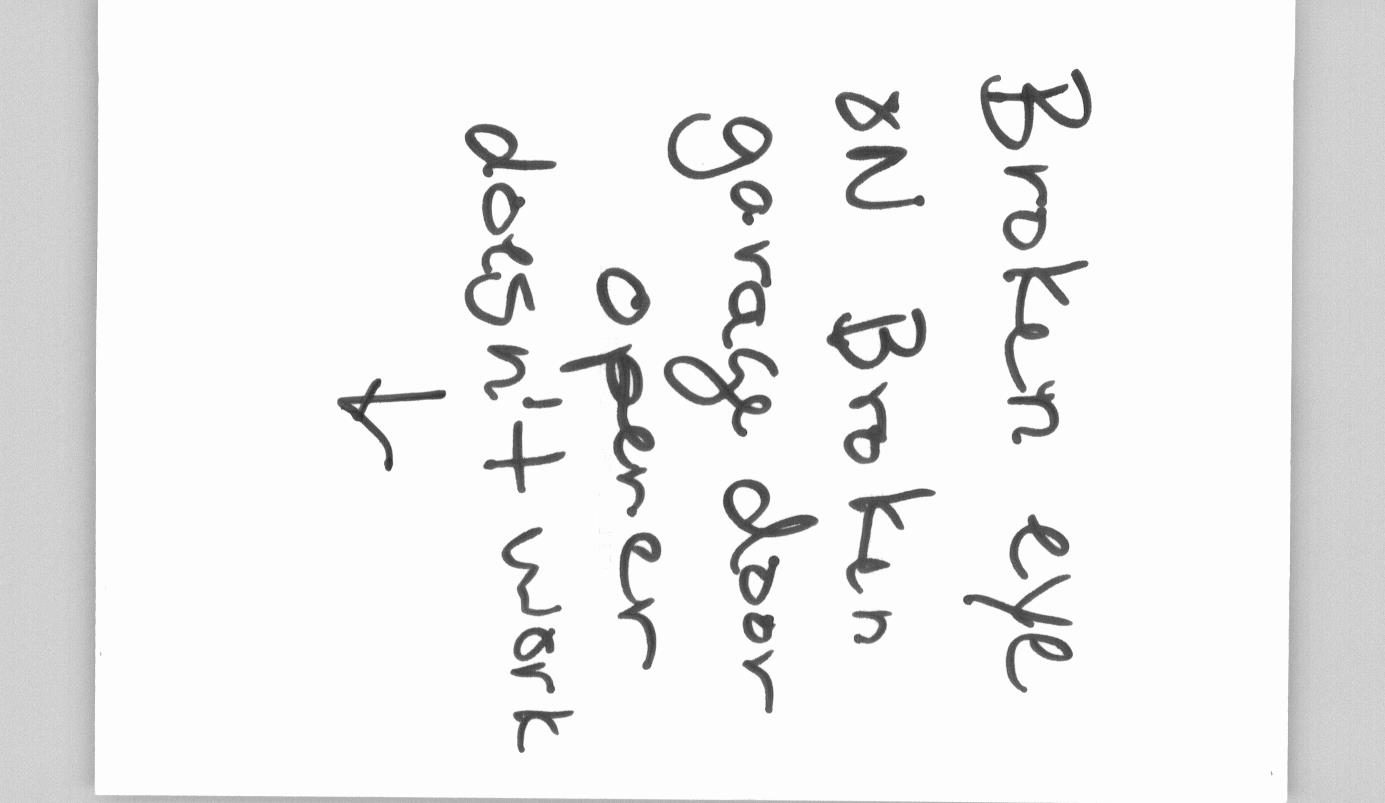 Broken eye
on Broken
garage door
opener
doesn't work